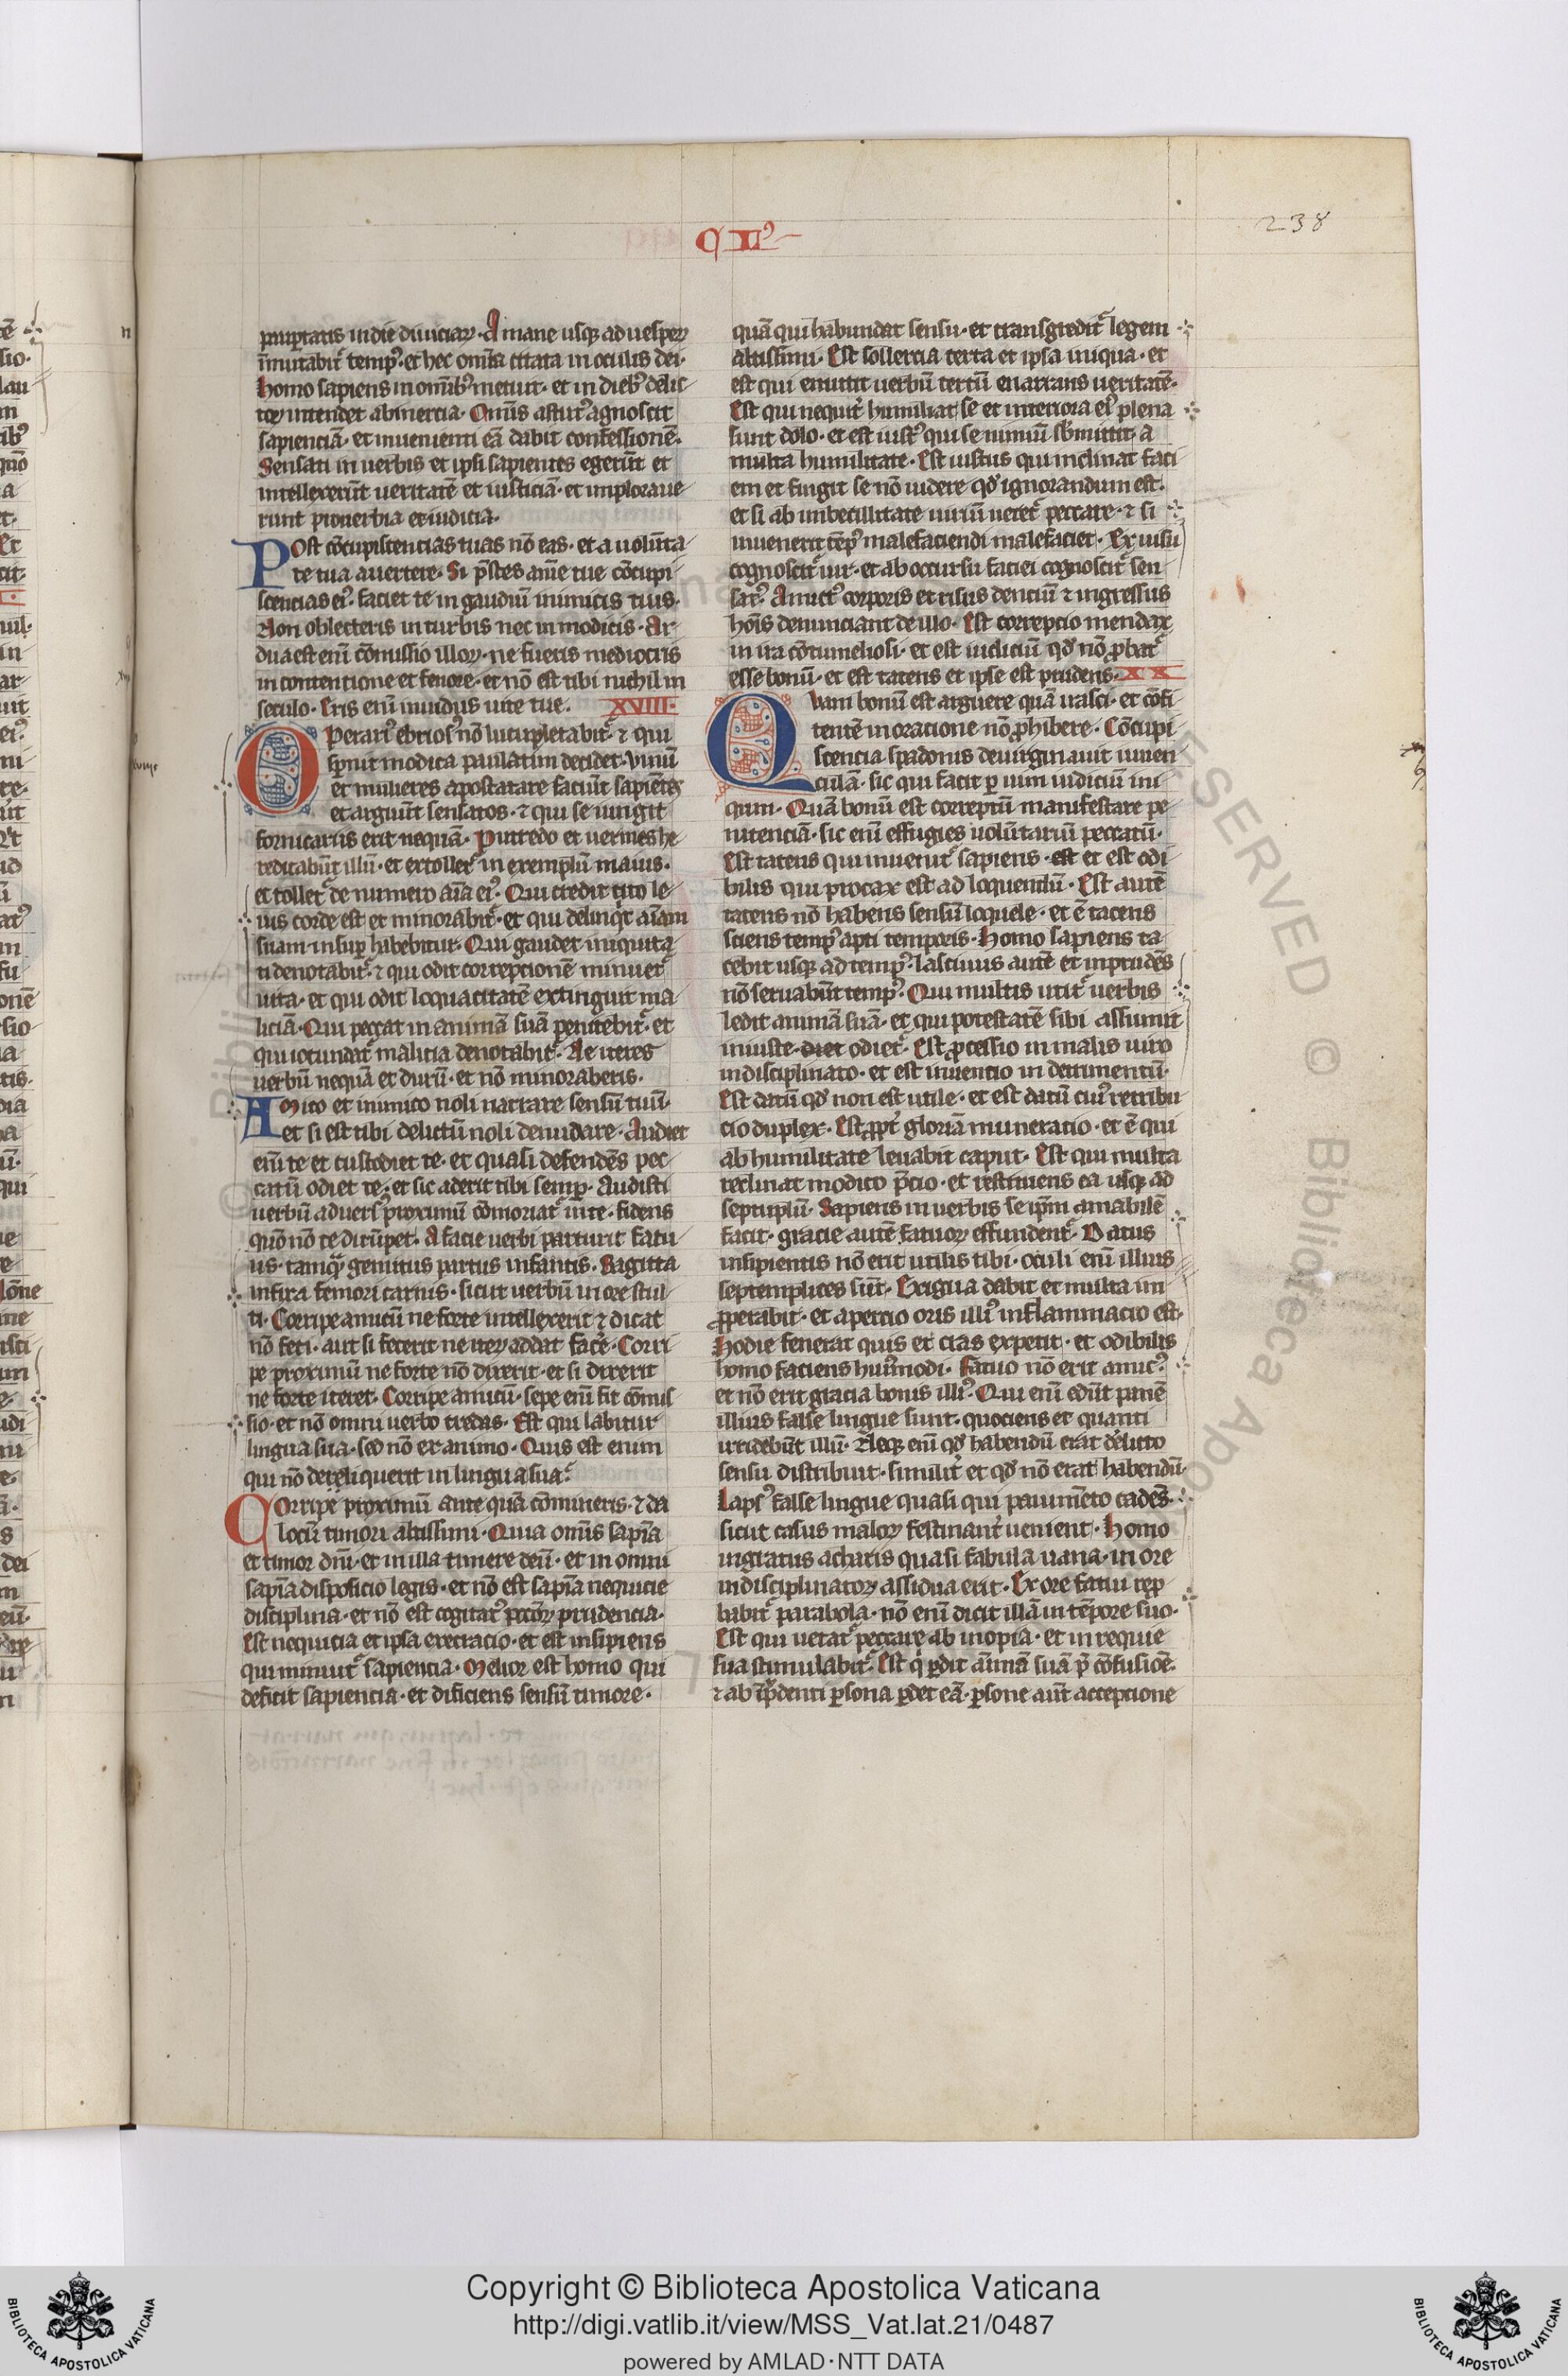 C Iꝰ
238
pauꝑtatis in die diuiciaꝝ· A mane usqꝫ ad uesperꝫ
īmutabitᷣ tempꝰ· et hec om̄ia citata in oculis dei·
Homo sapiens in om̄ibꝰ metuit· et in diebꝰ delic
toꝝ intendet ab inertia· Om̄is astutꝰ agnoscit
sapienciā· et inuenienti eā dabit confessionē·
Sensati in uerbis et ipsi sapientes egerūt et
intellexerūt ueritatē et iusticiā· et imploraue
runt prouerbia et iudicia·
Post cōcupiscencias tuas nō eas· et a uolūta
te tua auertere· Si p̄stes aīe tue cōcupi
scencias eiꝰ· faciet te in gaudiū inimicis tuis·
Non oblecteris in turbis nec in modicis· Ar
dua est enī cōmissio illoꝝ· ne fueris mediocris
in contentione et fenore· et nō est tibi nichil in
seculo· Eris enī inuidus uite tue· XVIIII·
Operariꝰ ebriosꝰ nō lucupletabitᷣ· ⁊ qui
spernit modica paulatim decidet· Vinū
et mulieres apostatare faciūt sapiētes
et arguūt sensatos· ⁊ qui se iungit
fornicariis erit nequā· Putredo et uermes he
reditabūt illū· et extolletᷣ in exemplū maius·
et tolletᷣ de numero aīa eiꝰ· Qui credit cito le
uis corde est et minorabitᷣ· et qui delinq̇t aīam
suam insuꝑ habebitur· Qui gaudet iniquita
ti denotabitᷣ· ⁊ qui odit correptionē minuetᷣ
uita· et qui odit loquacitatē extinguit ma
liciā· Qui peccat in animā suā penitebitᷣ· et
qui iocundatᷣ malicia denotabitᷣ· Ne iteres
uerbū nequā et durū· et nō minoraberis·
Amico et inimico noli narrare sensū tuū·
et si est tibi delictū noli denudare· Audiet
enī te et custodiet te· et quasi defendēs pec
catū odiet te· et sic aderit tibi semꝑ· Audisti
uerbū aduersꝰ proximū cōmoriatᷣ in te· fidens
quō nō te dirūpet· A facie uerbi parturit fatu
us· tamqᷓ gemitus partus infantis· Sagitta
infixa femori carnis· sicut uerbū in ore stul
ti· Corripe amicū ne forte intellexerit ⁊ dicat
nō feci· aut si fecerit ne iteꝝ addat facē· Corri
pe proximū ne forte nō dixerit· et si dixerit
ne forte iteret· Corripe amicū· sepe enī fit cōmis
sio· et nō omni uerbo credas· Est qui labitur
lingua sua· sed nō ex animo· Quis est enim
qui nō dereliquerit in lingua sua·
Corripe proximū ante quā cōmineris· ⁊ da
locū timori altissimi· Quia om̄is sapīa
et timor dn̄i· et in illa timere deū· et in omni
sapīa disposicio legis· et nō est sapīa nequicie
disciplina· et nō est cogitatꝰ pctōꝝ prudencia·
Est nequicia et ipsa execracio· et est insipiens
qui minuitᷣ sapiencia· Melior est homo qui
deficit sapiencia· et dificiens sensū timore·
quā qui habundat sensu· et transgreditᷣ legem
altissimi· Est sollercia certa et ipsa iniqua· et
est qui emittit uerbū certū enarrans ueritatē·
Est qui nequit̓ humiliat se et interiora eiꝰ plena
sunt dolo· et est iustꝰ qui se nimiū sb̄mittit a
multa humilitate· Est iustus qui inclinat faci
em et fingit se nō uidere qd̓ ignorandum est·
et si ab imbecillitate uiriū uetetᷣ peccare· ⁊ si
inuenerit tēpꝰ malefaciendi malefaciet· Ex uisu
cognoscitᷣ uir· et ab occursu faciei cognoscitᷣ sen
satꝰ· Amictꝰ corporis et risus dentiū ⁊ ingressus
hoīs denunciant de illo· Est correpcio mendax
in ira cōtumeliosi· et est iudiciū qd̓ nō ꝓbatᷣ
esse bonū· et est tacens et ipse est prudens· XX
Quam bonū est arguere quā irasci· et cōfi
tentē in oracione nō ꝓhibere· Cōcupi
scencia spadonis deuirginauit iuuen
culā· sic qui facit ꝑ uim iudiciū ini
quum· Quā bonū est correptū manifestare pe
nitenciā· sic enī effugies uolūtariū peccatū·
Est tacens qui inuenitᷣ sapiens· est et est odi
bilis qui procax est ad loquendū· Est autē
tacens nō habens sensū loquele· et ē tacens
sciens tempꝰ apti temporis· Homo sapiens ta
cebit usqꝫ ad tempꝰ· lasciuus autē et inprudēs
nō seruabūt tempꝰ· Qui multis utitᷣ uerbis
ledit animā suā· et qui potestatē sibi assumit
iniuste· diet odietᷣ· Est ꝓcessio in malis uiro
indisciplinato· et est inuentio in detrimentū·
Est datū qd̓ non est utile· et est datū cuiꝰ retribu
cio duplex· Est ꝓpt̓ gloriā minoratio· et ē qui
ab humilitate leuabit caput· Est qui multa
reclinat modico p̄cio· et restituens ea usqꝫ ad
septuplū· Sapiens in uerbis se ip̄m amabilē
facit· gracie autē fatuoꝝ effundentᷣ· Datus
insipientis nō erit utilis tibi· oculi enī illius
septemplices sūt· Exigua dabit et multa im
ꝓperabit· et apercio oris illiꝰ inflammacio est·
Hodie fenerat quis et cras expetit· et odibilis
homo faciens huiꝰmodi· Fatuo nō erit amicꝰ·
et nō erit gracia bonis illiꝰ· Qui enī edūt panē
illius false lingue sunt· quociens et quanti
irridebūt illū· Neqꝫ enī qd̓ habendū erat derecto
sensu distribuit· similit̓ et qd̓ nō erat habendū·
Lapsꝰ false lingue quasi qui pauimēto cadēs·
sicut casus maloꝝ festinant̓ uenient· Homo
ingratus acharis quasi fabula uana· in ore
indisciplinatoꝝ assidua erit· Ex ore fatui rep
babitᷣ parabola· nō enī dicit illā in tēpore suo·
Est qui uetatᷣ peccare ab inopia· et in requie
sua stimulabitᷣ· Est q̇ ꝑdit aīmā suā p̄ cōfusiōē·
⁊ ab īprudenti ꝑsona ꝑdet eā· ꝑsone aūt acceptione
Copyright © Biblioteca Apostolica Vaticana
http://digi.vatlib.it/view/MSS_Vat.lat.21/0487
powered by AMLAD·NTT DATA
BIBLIOTECA APOSTOLICA VATICANA
BIBLIOTECA APOSTOLICA VATICANA